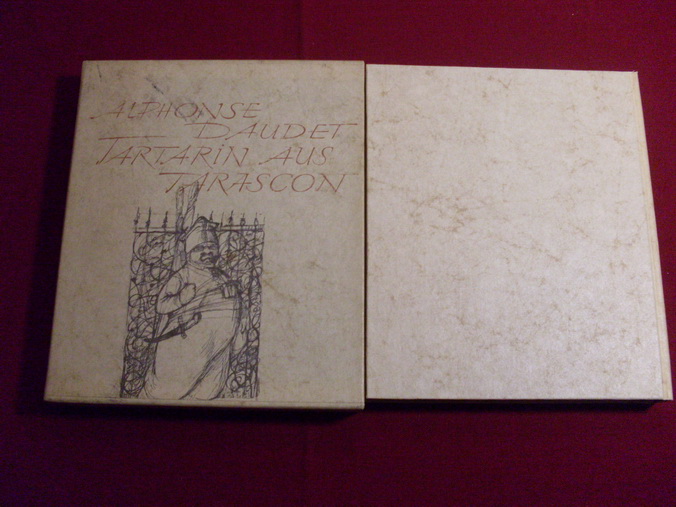 ALPHONSE
DAUDET
TARTARIN AUS
TARASCON